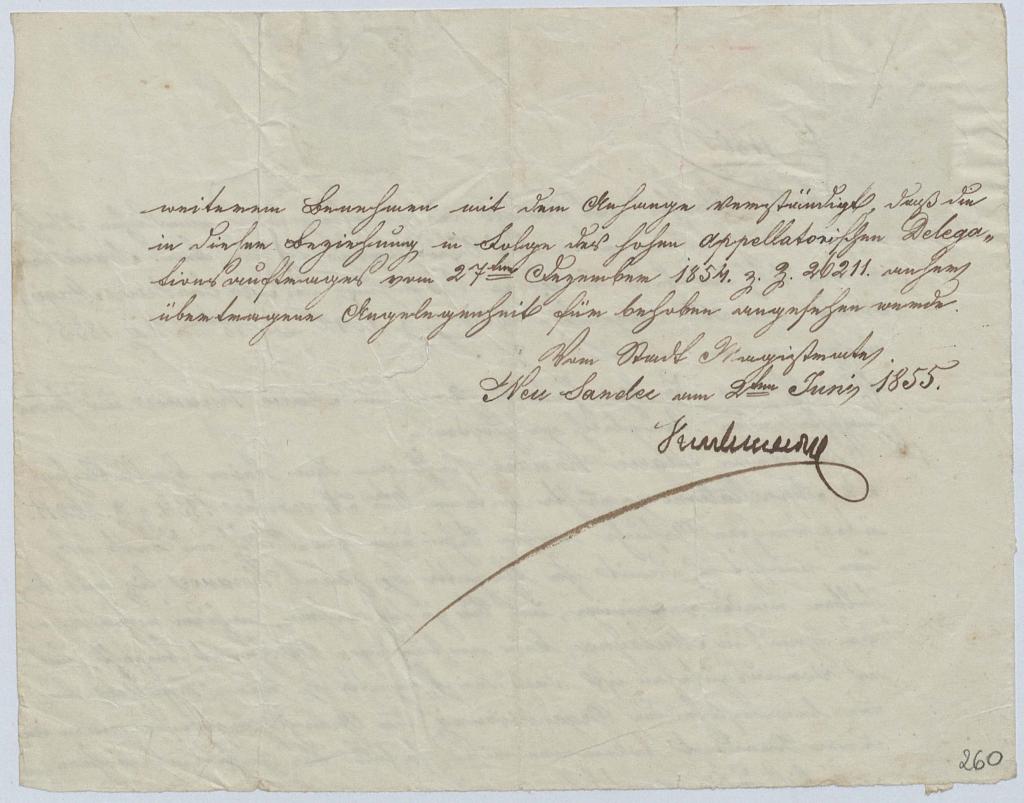 weiterem Benehmen mit dem Anhange verständigt, daß die
in dieser Beziehung in Folge des hohen appellatorischen Delega=
tionsauftrages vom 27ten Dezember 1854. z. Z. 26211. anher
übertragene Angelegenheit für behoben angesehen werde.
Vom Stadt Magistrate,
Neu Sandec am 2ten Juni 1855.
260